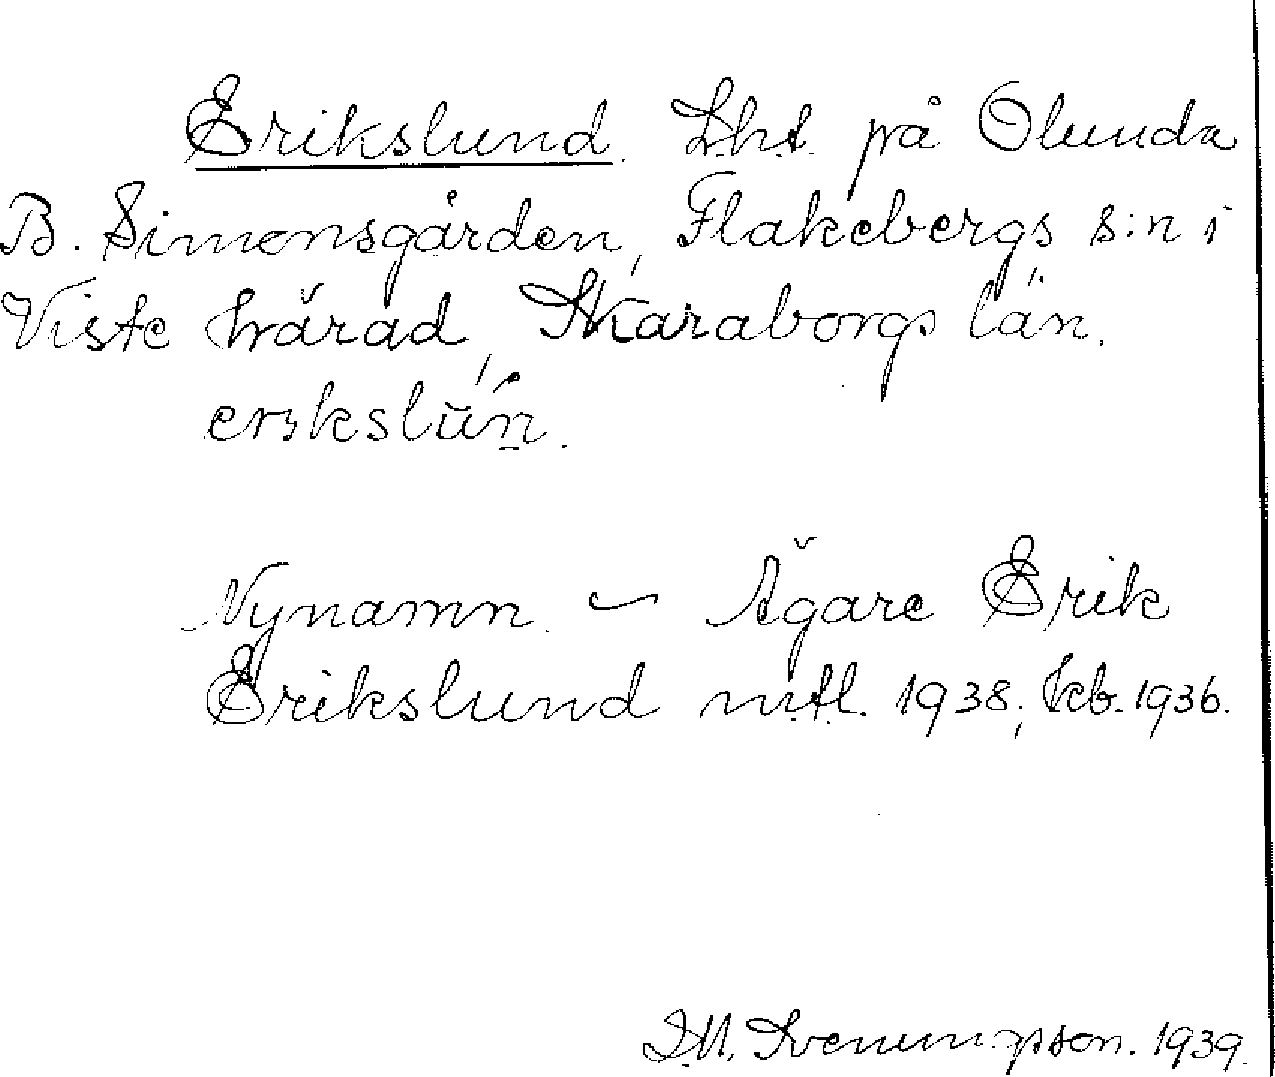 Erikslund. Lht. på Olunda
B. Simonsgården, Flakebergs s:n i
Viste härad, Skaraborgs län.
erikslún.
Nynamn. — Ägare Erik
Erikslund mtl. 1938; kb. 1936.
Svenungsson. 1939.